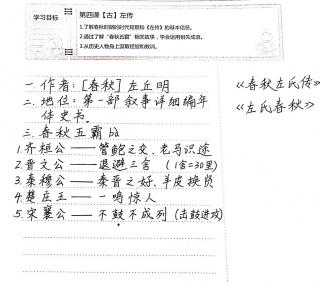 学习目标
第四课【古】左传
1.了解春秋时期的时代背景和《左传》的基本信息。
2.通过了解“春秋五霸”相关故事，学会运用相关成语。
3.从历史人物身上汲取经验和教训。
一.作者:[春秋]左丘明
二.地位:第一部叙事详细编年
体史书。
三.春秋五霸
1.齐桓公——管鲍之交、老马识途
2.晋文公——退避三舍(1舍=30里)
3.秦穆公——秦晋之好、羊皮换贤
4.楚庄王——一鸣惊人
5.宋襄公——不鼓不成列(击鼓进攻)
《春秋左氏传》
《左氏春秋》